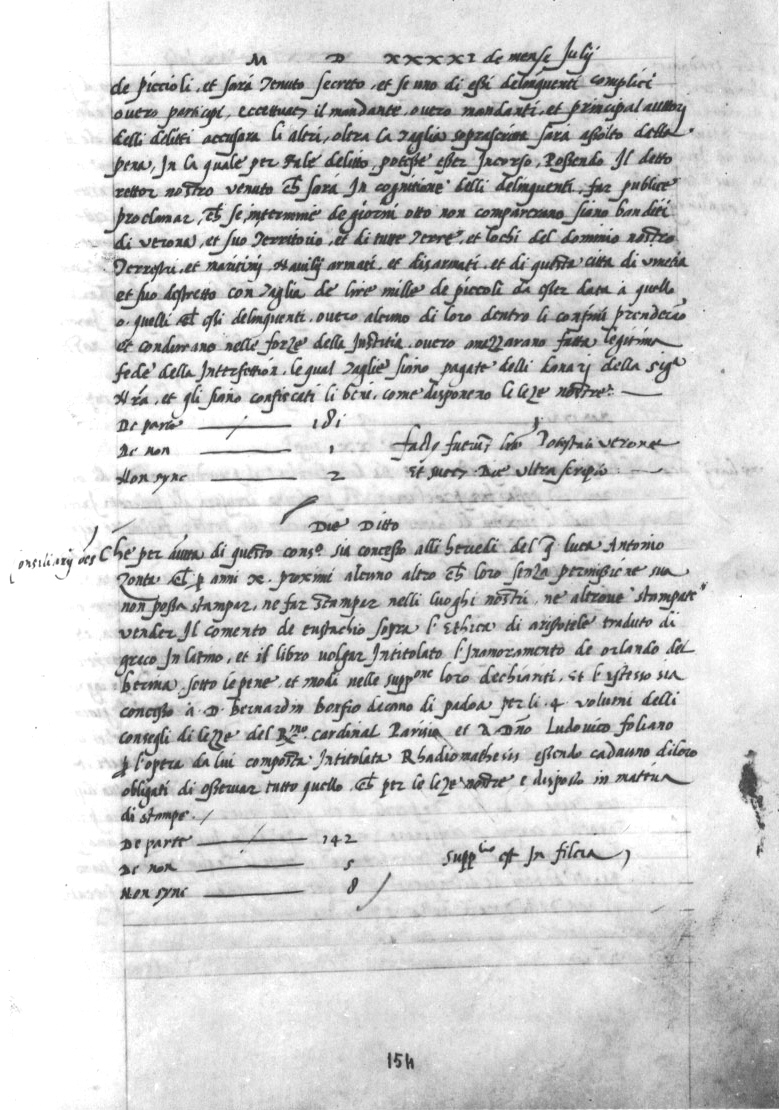 M D XXXXI de mense Julij
de piccioli, et sarà tenuto secreto, et se uno di essi delinquenti complici
overo participi, eccettuati il mandante, overo mandanti, et principal auttori
delli delitti accusara li altri, oltra la taglia soprascritta sara assolto della
pena, In la quale per tale delitto, potesse esser Incorso, Possendo Il detto
rettor nostro venuto ch sarà In cognitione delli delinquenti, far publice
proclamar, ch se, intermine de giorni otto non compareranno siano banditi
di verona, et suo territorio, et di tutte terre, et lochi del dominio nostro
terrestri, et maritimi, Navilij armati, et disarmati, et di questa citta di venetia
et suo destretto con taglia de lire mille de piccoli da esser data à quello,
o quelli ch essi delinquenti, overo alcuno di loro dentro li confini prenderão
et condurrano nelle forze della Iustitia, overo amazzarano fatta legitima
fede della Interfettion, le qual taglie siano pagate delli denari della sigª
Nrã, et gli siano confiscati li beni, come disponeno le leze nostre.
De parte 181
De non 1 facte fuerũt lrẽ Potestati verone
Non sync 2 Die ultrascripto
Die Ditto
Consiliarij oẽs Che per autta di questo consº sia concesso alli heredi del q luca Antonio
zonta ch p anni x. proximi alcuno altro ch loro senza permissione sua
non possa stampar, ne far stampar nelli luoghi nostri, ne altrove stampate
vender Il comento de eustachio sopra l'Ethica di aristotele traduto di
greco In latino, et il libro volgar Intitolato l'Inamoramento de orlando del
berma, sotto le pene, et modi nelle suppone loro dechianti, Et l'istesso sia
concesso à D. bernardin borfio decano di padoa per li. 4. volumi delli
consegli di lezze del Rmo. cardinal Parisia et A Dño Ludovico foliano
p l'opera da lui composta Intitolata Rhadiomathesis essendo cadauno di loro
obligati di osservar tutto quello, ch per le leze nostre e disposto in materia
di stampe.
De parte 142
De non 5 suppto est In filcia
Non sync 8
154